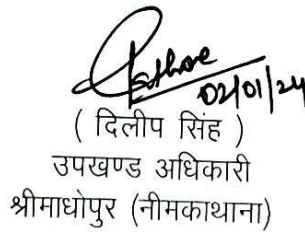 02/01/24
( दिलीप सिंह )
उपखण्ड अधिकारी
श्रीमाधोपुर (नीमकाथाना)